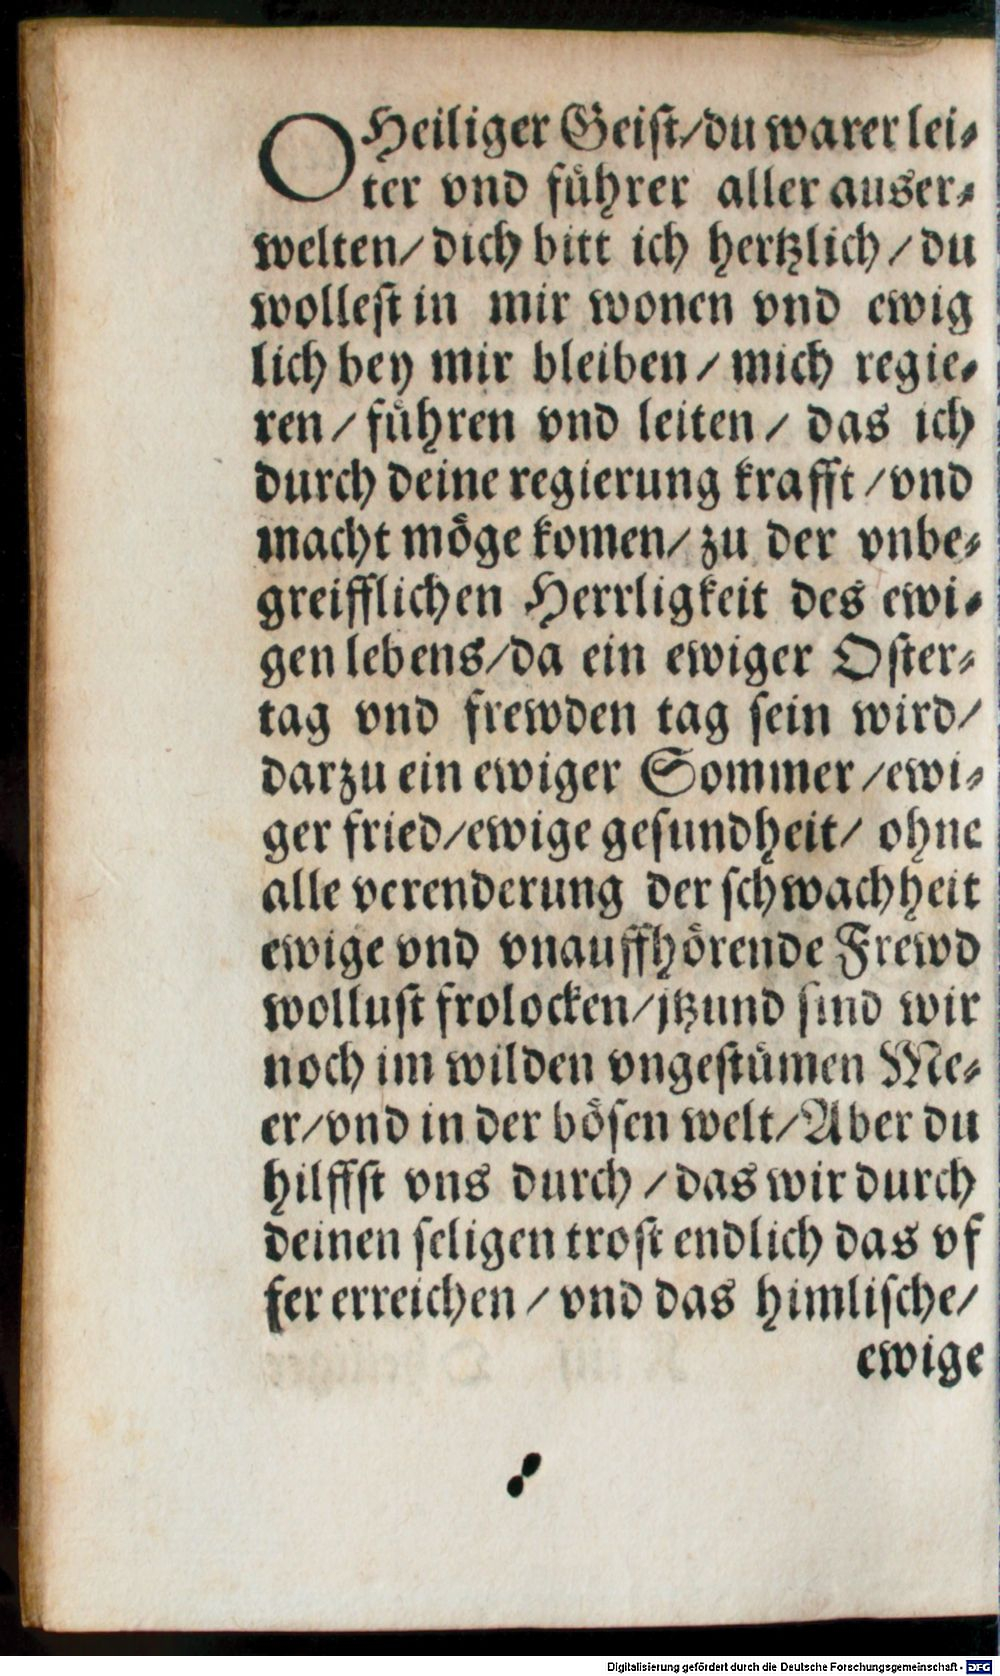 O Heiliger Geist/du warer lei⸗
ter vnd führer aller auser⸗
welten/dich bitt ich hertzlich/du
wollest in mir wonen vnd ewig
lich bey mir bleiben/mich regie⸗
ren/führen vnd leiten/das ich
durch deine regierung krafft/vnd
macht möge komen/zu der vnbe⸗
greifflichen Herrligkeit des ewi⸗
gen lebens/da ein ewiger Oster⸗
tag vnd frewden tag sein wird/
darzu ein ewiger Sommer/ewi⸗
ger fried/ewige gesundheit/ohne
alle verenderung der schwachheit
ewige vnd vnauffhörende Frewd
wollust frolocken/jtzund sind wir
noch im wilden vngestümen Me⸗
er/vnd in der bösen welt/Aber du
hilffst vns durch/das wir durch
deinen seligen trost endlich das vf
fer erreichen/vnd das himlische/
ewige
Digitalisierung gefördert durch die Deutsche Forschungsgemeinschaft - DFG